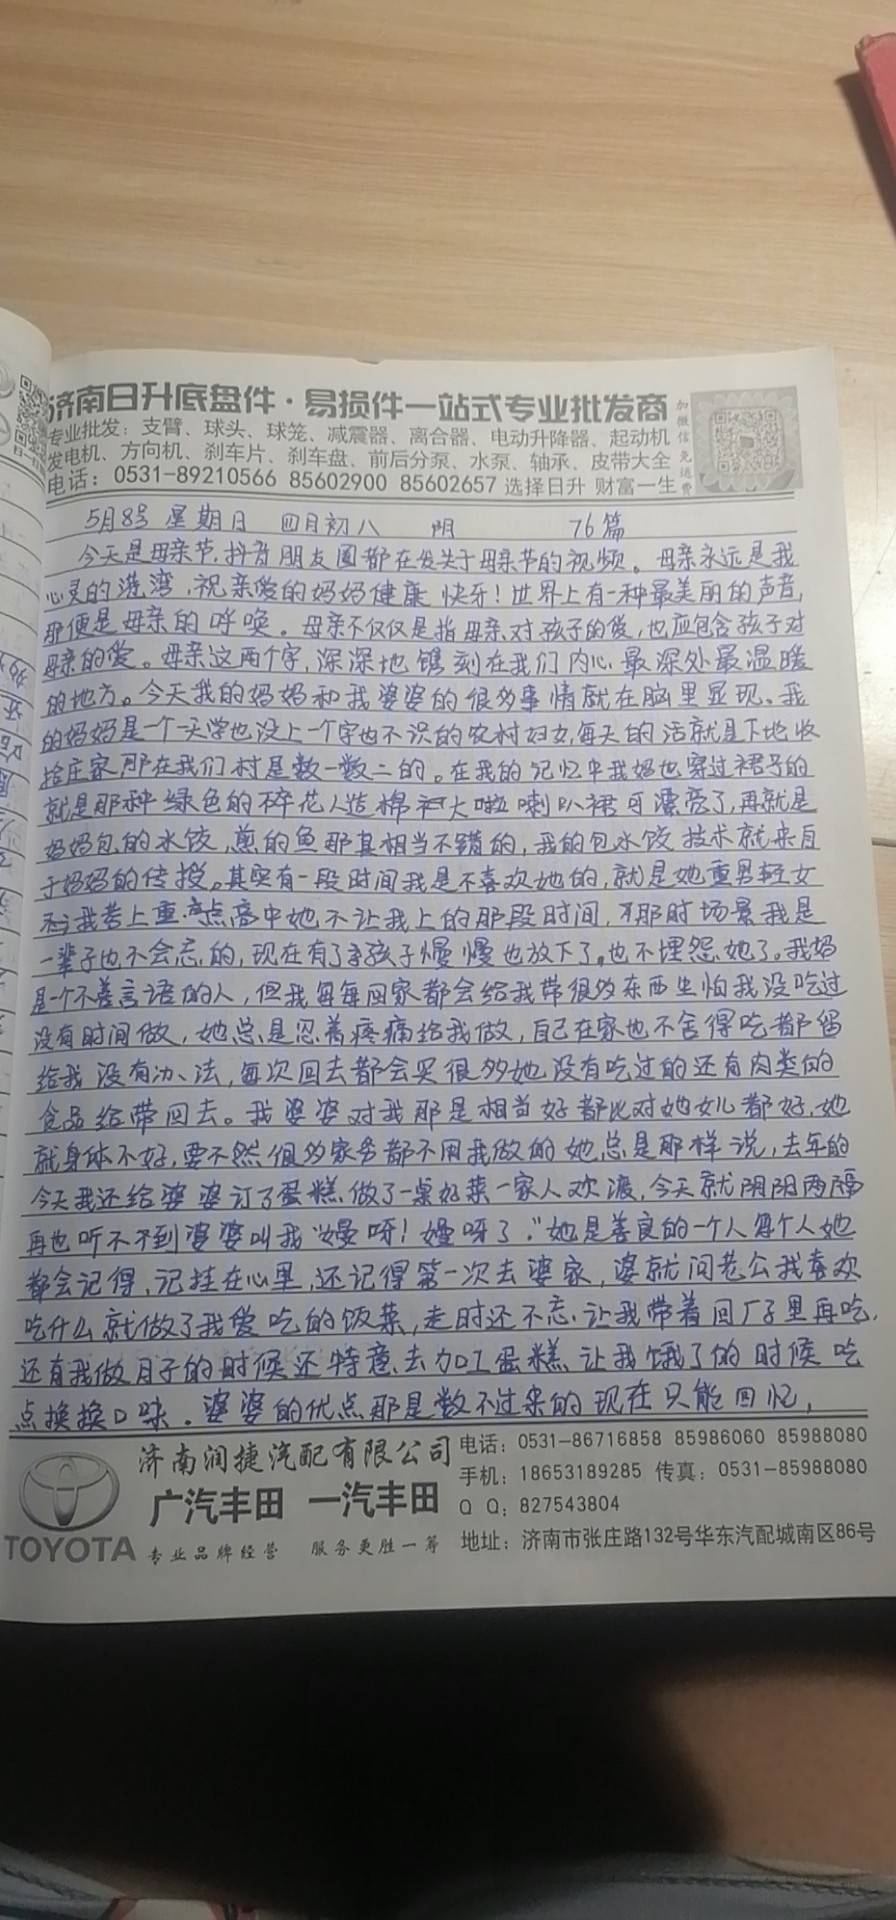 济南日升底盘件·易损件一站式专业批发商
加微信免运费
专业批发：支臂、球头、球笼、减震器、离合器、电动升降器、起动机
发电机、方向机、刹车片、刹车盘、前后分泵、水泵、轴承、皮带大全
电话：0531-89210566 85602900 85602657 选择日升 财富一生
5月8号 星期日 四月初八 阴 76篇
今天是母亲节，抖音朋友圈都在发关于母亲节的视频。母亲永远是我
心灵的港湾，祝亲爱的妈妈健康快乐！世界上有一种最美丽的声音，
那便是母亲的呼唤。母亲不仅仅是指母亲对孩子的爱，也应包含孩子对
母亲的爱。母亲这两个字，深深地镌刻在我们内心最深处最温暖
的地方。今天我的妈妈和我婆婆的很多事情就在脑里显现、我
的妈妈是一个一天学也没上一个字也不识的农村妇女，每天的活就是下地收
拾庄家，那在我们村是数一数二的。在我的记忆中我妈也穿过裙子的
就是那种绿色的碎花人造棉 大啦喇叭裙可漂亮了，再就是
妈妈包的水饺，煎的鱼那真相当不错的，我的包水饺技术就来自
于妈妈的传授。其实有一段时间我是不喜欢她的，就是她重男轻女
我考上重点高中她不让我上的那段时间，那时场景我是
一辈子也不会忘的，现在有了孩子慢慢也放下了。也不埋怨她了。我妈
是一个不善言语的人，但我每每回家都会给我带很多东西生怕我没吃过
没有时间做，她总是忍着疼痛给我做，自己在家也不舍得吃都留
给我没有办法，每次回去都会买很多她没有吃过的还有肉类的
食品给带回去。我婆婆对我那是相当好都比对她女儿都好，她
就身体不好，要不然很多家务都不用我做的她总是那样说，去年的
今天我还给婆婆订了蛋糕做了一桌好菜一家人欢渡，今天就阴阳两隔
再也听不到婆婆叫我“嫚呀！嫚呀了。”她是善良的一个人每个人她
都会记得，记挂在心里，还记得第一次去婆家，婆就问老公我喜欢
吃什么就做了我爱吃的饭菜，走时还不忘让我带着回厂子里再吃，
还有我做月子的时候还特意去加工蛋糕让我饿了的时候吃
点换换口味。婆婆的优点那是数不过来的现在只能回忆，
TOYOTA
济南润捷汽配有限公司
广汽丰田 一汽丰田
专业品牌经营 服务更胜一筹
电话：0531-86716858 85986060 85988080
手机：18653189285 传真：0531-85988080
Q Q：827543804
地址：济南市张庄路132号华东汽配城南区86号